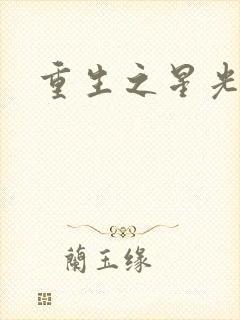 重生之星光
蘭玉缘